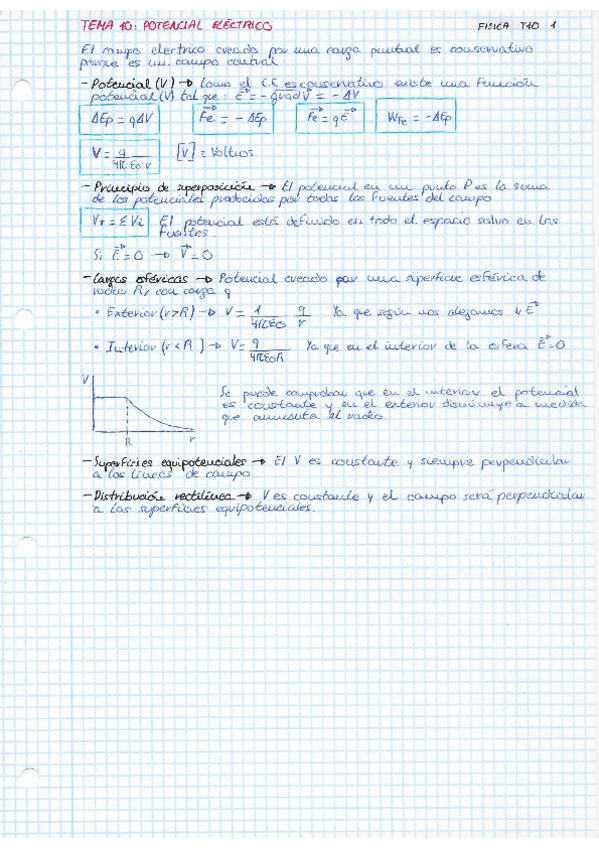 TEMA 10: POTENCIAL ELÉCTRICO
FISICA T10 1
El campo electrico creado por una carga puntual es conservativo
porque es un campo central
- Potencial (V) → Como el C.E es conservativo existe una función
potencial (V) tal que: E = - grad V = - ΔV
ΔEp = qΔV
Fe = - ΔEp
Fe = qE
WFe = -ΔEp
V = q / 4πε0·r
[V] = Voltios
- Principio de superposición → El potencial en un punto P es la suma
de los potenciales producidos por todas las fuentes del campo
VT = ΣVi
El potencial está definido en todo el espacio salvo en las
fuentes.
Si E = 0 → V = 0
- Cargas esféricas → Potencial creado por una superficie esférica de
radio R, con carga q
• Exterior (r>R) → V = 1 / 4πε0 q / r Ya que según nos alejamos ↓ E
• Interior (r<R) → V = q / 4πε0R Ya que en el interior de la esfera E=0
V
Se puede comprobar que en el interior el potencial
es constante y en el exterior disminuye a medida
que aumenta el radio.
R
r
- Superficies equipotenciales → El V es constante y siempre perpendicular
a las líneas de campo
- Distribución rectilínea → V es constante y el campo será perpendicular
a las superficies equipotenciales.